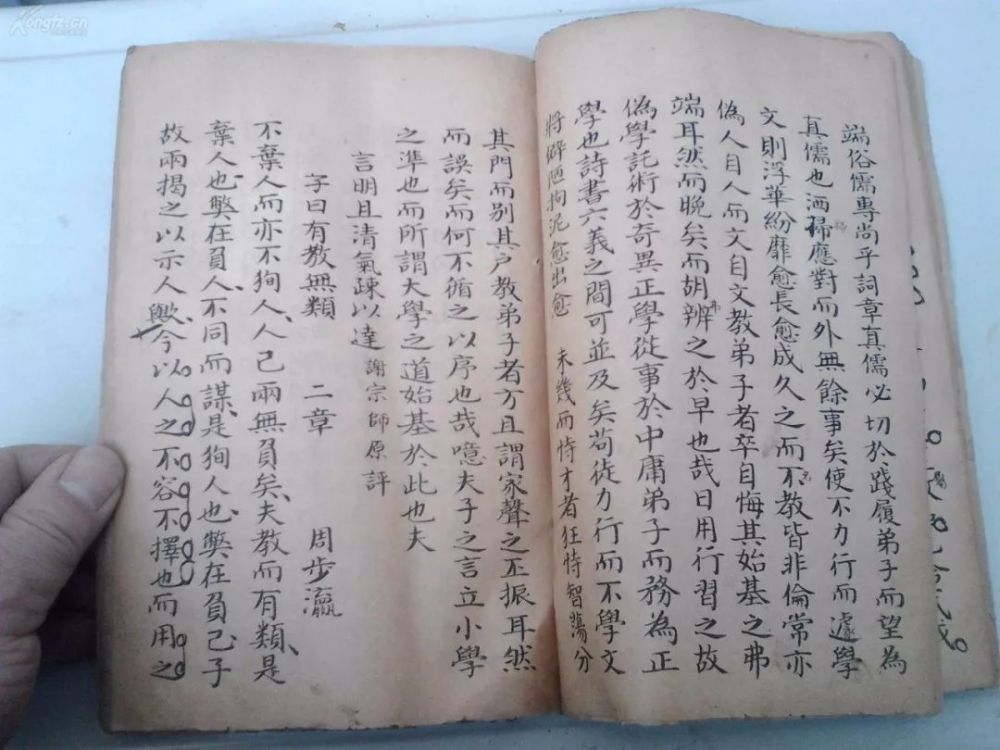 Kongfz.cn
端俗儒專尚乎詞章真儒必切於踐履弟子而望為
真儒也洒掃應對而外無餘事矣使不力行而遽學
文則浮華紛靡愈長愈成久之而不教皆非倫常亦
偽人自人而文自文教弟子者卒自悔其始基之弗
端耳然而晚矣而胡弗辨之於早也哉日用行習之故
偽學託術於奇異正學從事於中庸弟子而務為正
學也詩書六義之間可並及矣苟徒力行而不學文
將僻陋拘泥愈出愈 未幾而恃才者狂恃智蕩分
其門而別其户教弟子者方且謂家聲之丕振耳然
而誤矣而何不循之以序也哉噫夫子之言立小學
之準也而所謂大學之道始基於此也夫
言明且清氣疎以達 謝宗師原評
子曰有教無類 二章 周步瀛
不棄人而亦不狥人人己兩無負矣夫教而有類是
棄人也獘在負人不同而謀是狥人也獘在負己子
故兩揭之以示人歟今以人之不容不擇也而用之